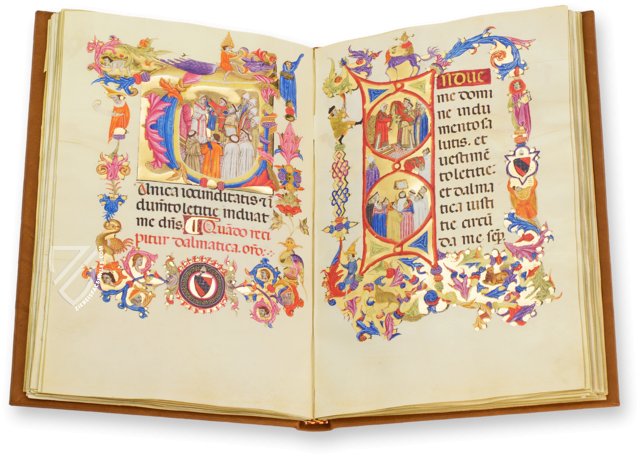 unica iocunditatis ⁊ i
dumēto letitie induat
me dn̄s. Quādo reci
pitur dalmatica. orō.
Indue
me domi
ne indu
mento sa
lutis. et
uestimē
to letitie.
et dalma
tica iusti
tie circū
da me semp.